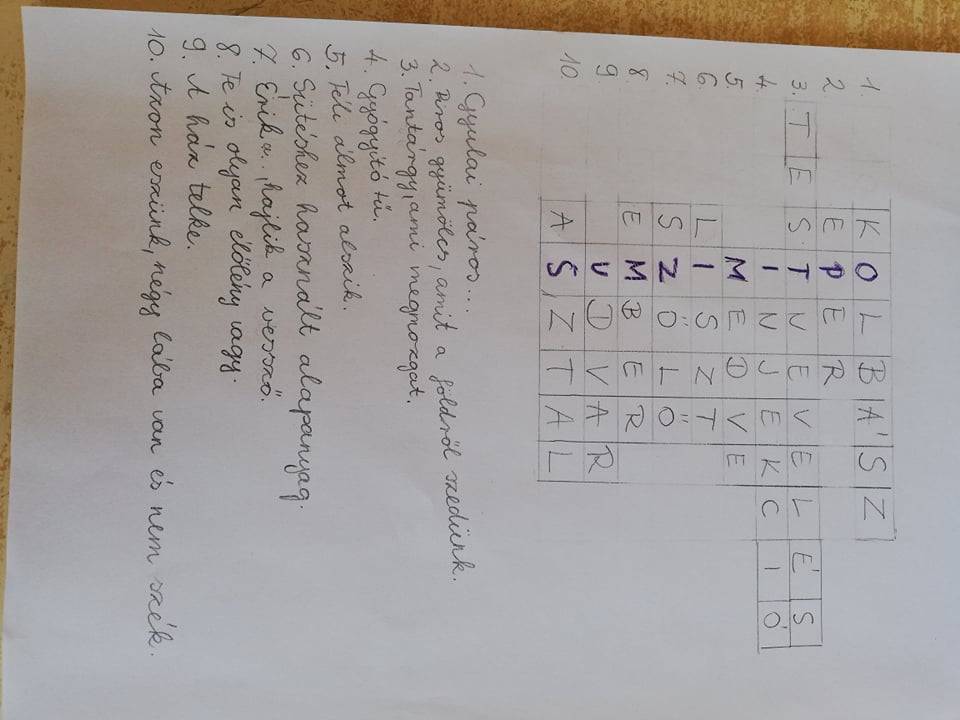 1. KOLBÁSZ
2. EPER
3. TESTNEVELÉS
4. INJEKCIÓ
5. MEDVE
6. LISZT
7. SZŐLŐ
8. EMBER
9. UDVAR
10 ASZTAL
1. Gyulai páros...
2. Piros gyümölcs, amit a földről szedünk.
3. Tantárgy, ami megmozgat.
4. Gyógyító tű.
5. Téli álmot alszik.
6. Sütéshez használt alapanyag.
7. Érik a.., hajlik a vessző.
8. Te is olyan élőlény vagy.
9. A ház telke.
10. Azon eszünk, négy lába van és nem szék.